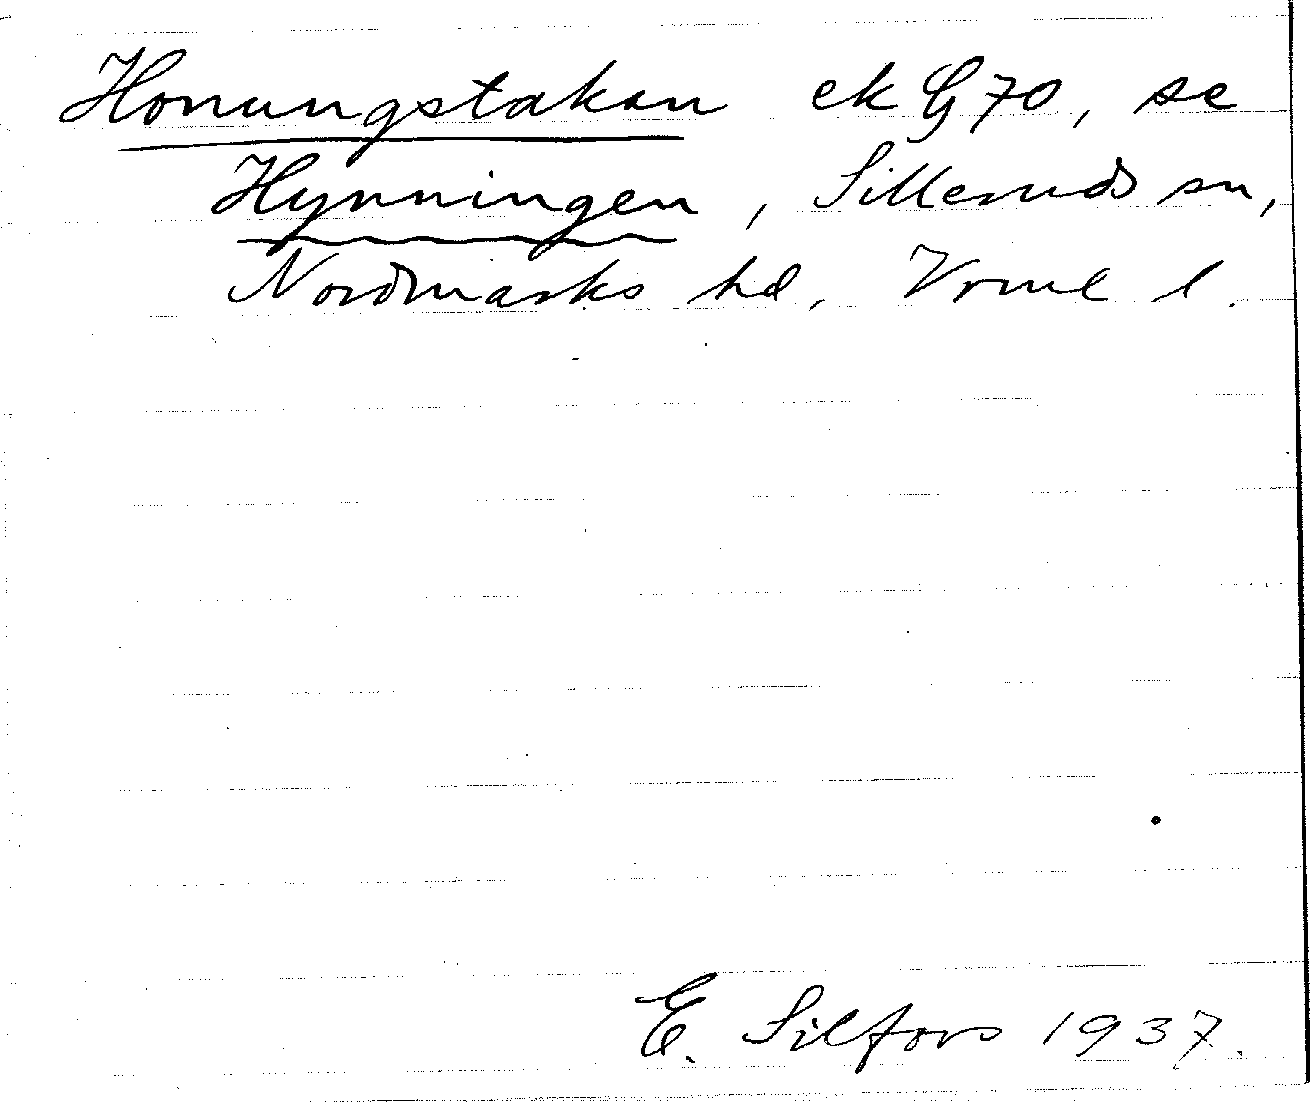 Honungstakan ek G 70, se
Hynningen, Silleruds sn,
Nordmarks hd, Vrml l.
E. Silfors 1937.